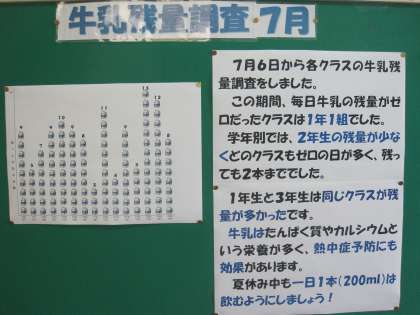 牛乳残量調査 7月
7月6日から各クラスの牛乳残
量調査をしました。
この期間、毎日牛乳の残量がゼ
ロだったクラスは1年1組でした。
学年別では、2年生の残量が少な
くどのクラスもゼロの日が多く、残
っても2本まででした。
1年生と3年生は同じクラスが残
量が多かったです。
牛乳はたんぱく質やカルシウムと
いう栄養が多く、熱中症予防にも
効果があります。
夏休み中も一日1本(200ml)は
飲むようにしましょう！